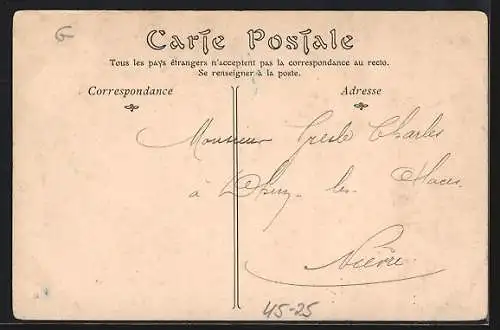 G
Carte Postale
Tous les pays étrangers n'acceptent pas la correspondance au recto.
Se renseigner à la poste.
Correspondance
Adresse
Monsieur Charles
à les Places
Nièvre
45-25